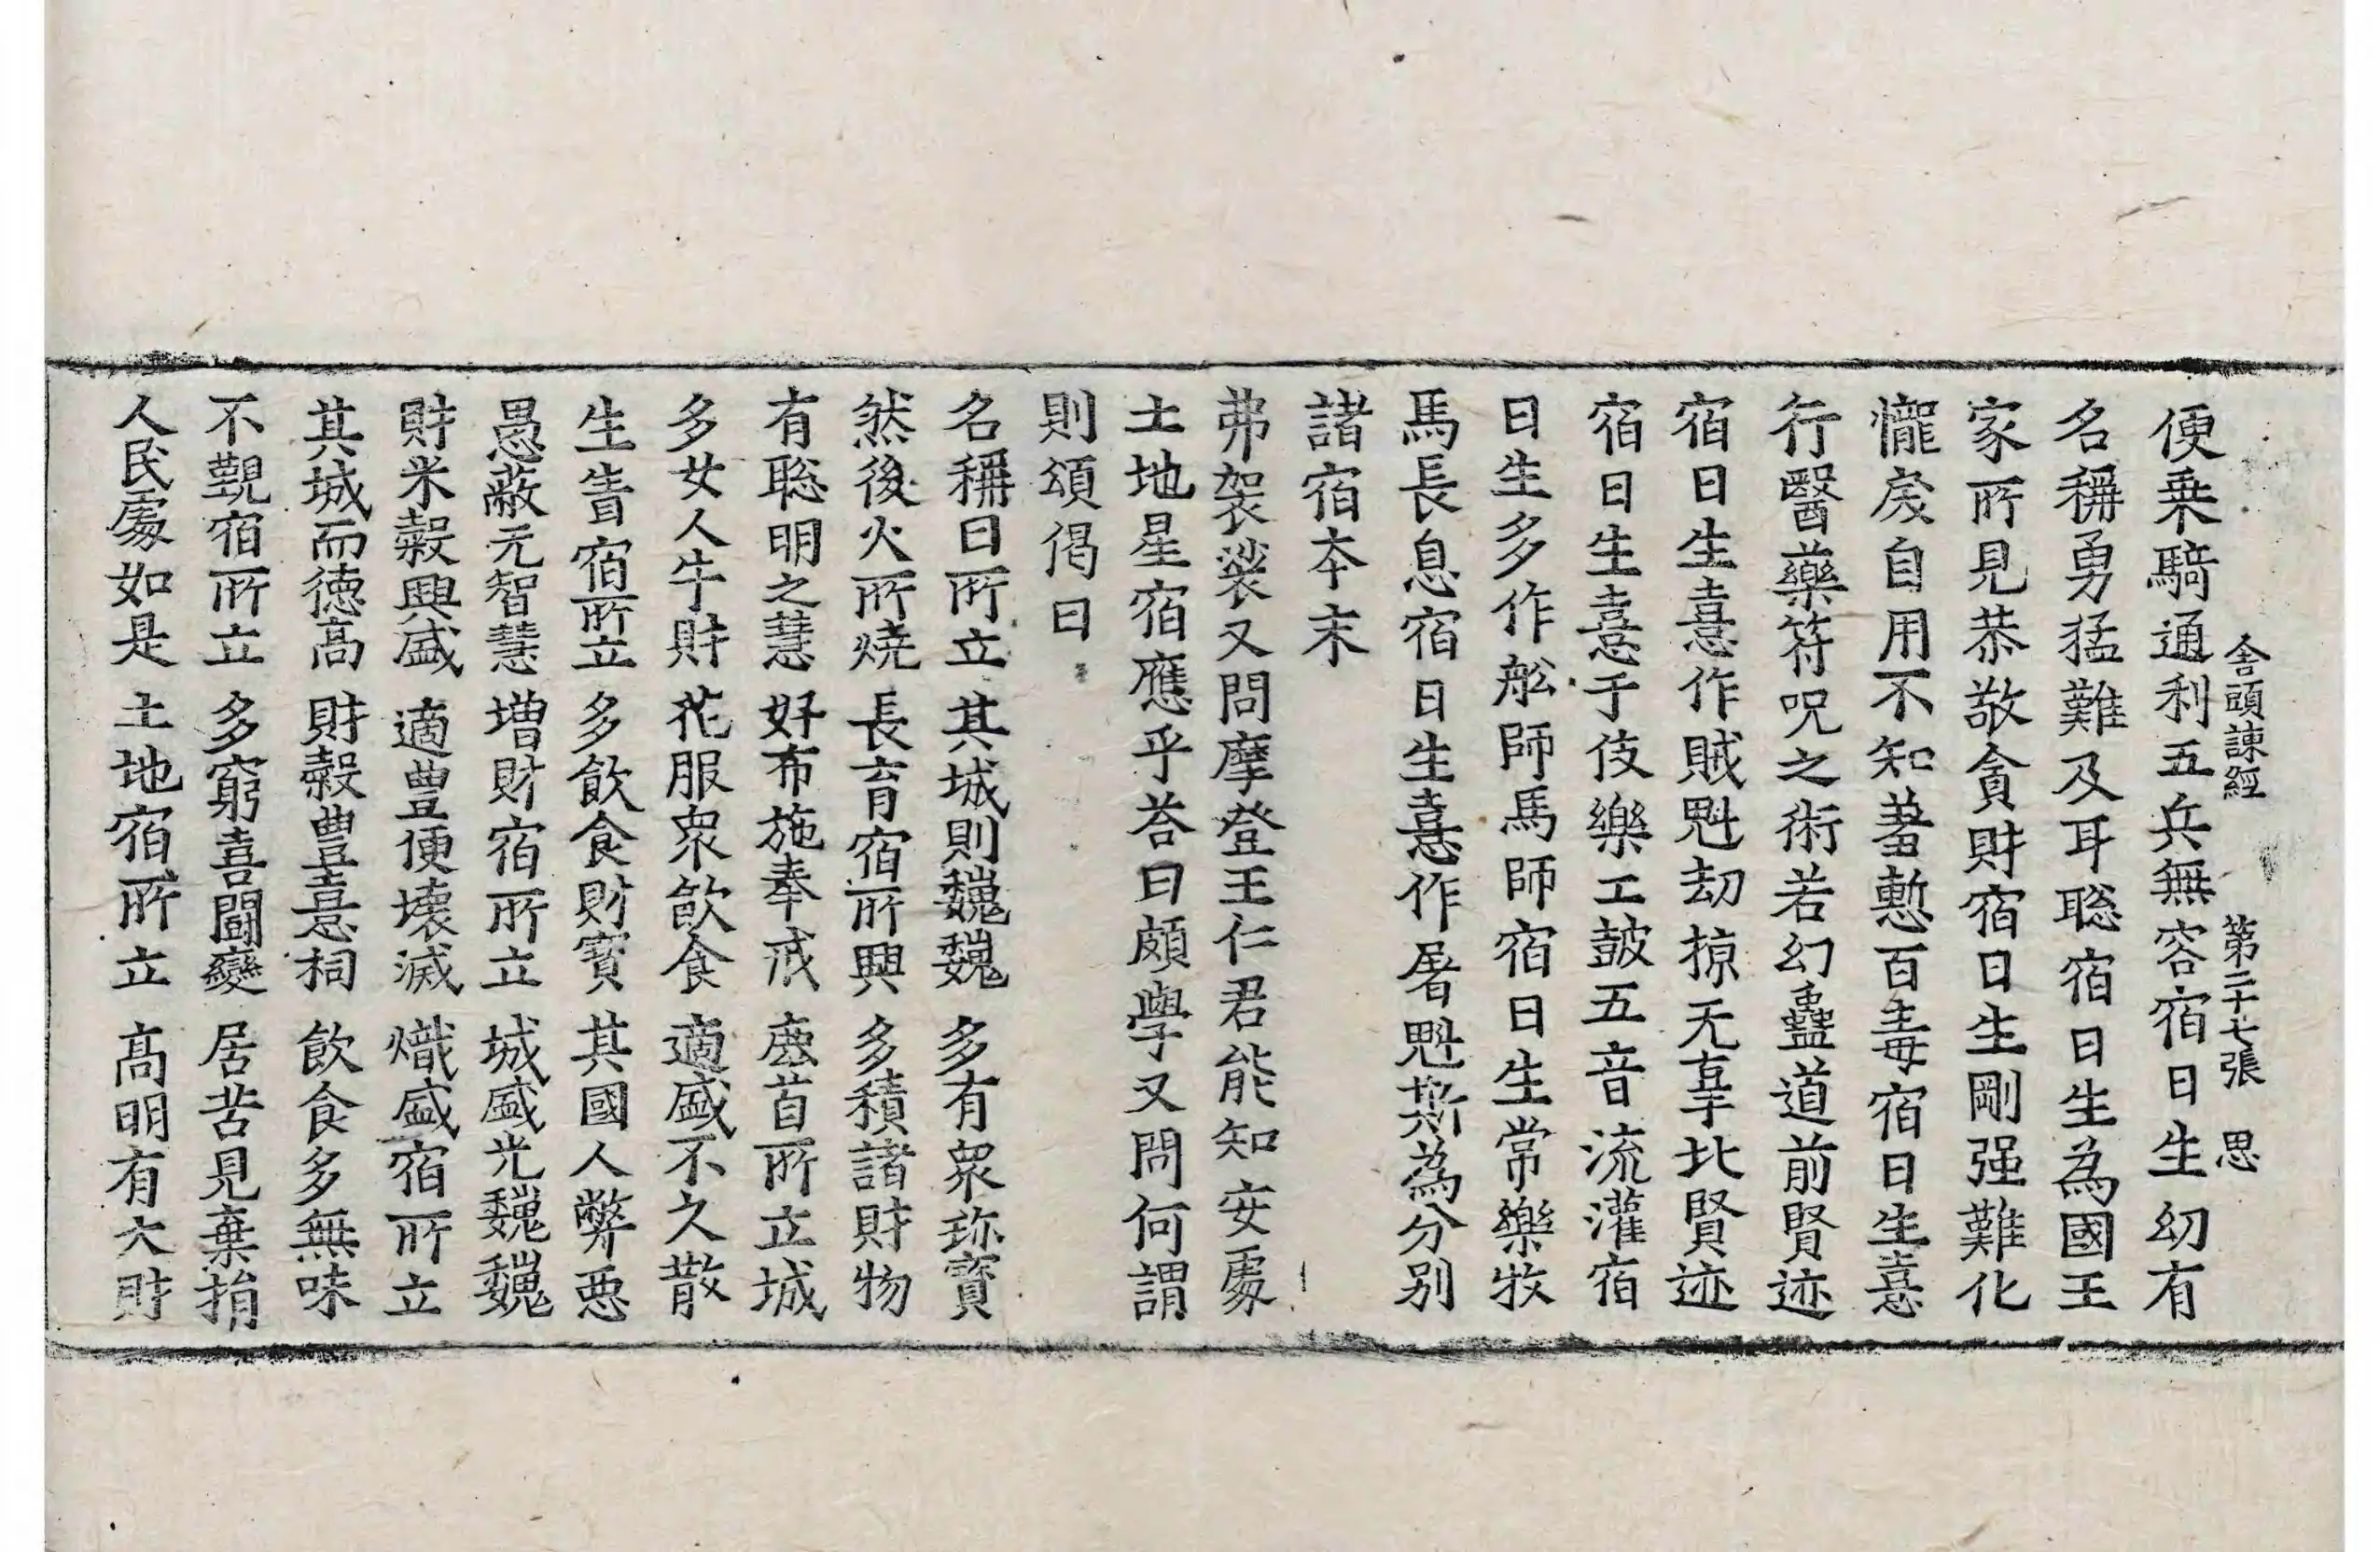 便乗騎通利五兵無容容宿日生幼有
舍頭諫經 第二十七張 思
名稱勇猛難及耳聡宿日生為國王
家所見恭敬貪財宿日生剛强難化
儱戾自用不知羞慙百毒宿日生憙
行醫藥符呪之術若幻蠱道前賢迹
宿日生憙作賊魁劫掠无辜比賢迹
宿日生憙于伎樂工鼓五音流灌宿
日生多作舩師馬師宿日生常樂牧
馬長息宿日生憙作屠魁斯為分别
諸宿本末
弗袈裟又問摩登王仁君能知安處
土地星宿應乎荅曰頗學又問何謂
則頌偈曰
名稱曰所立 其城則巍巍 多有衆珎寳
然後火所燒 長育宿所興 多積諸財物
有聡明之慧 好布施奉戒 鹿首所立城
多女人牛財 花服衆飲食 適盛不久散
生眚宿所立 多飲食財寳 其國人弊悪
愚蔽无智慧 增財宿所立 城盛光巍巍
財米穀興盛 適豊便壞滅 熾盛宿所立
其城而德高 財穀豊憙祠 飲食多無味
不覩宿所立 多窮喜闘變 居苦見棄捐
人民處如是 土地宿所立 高明有大財